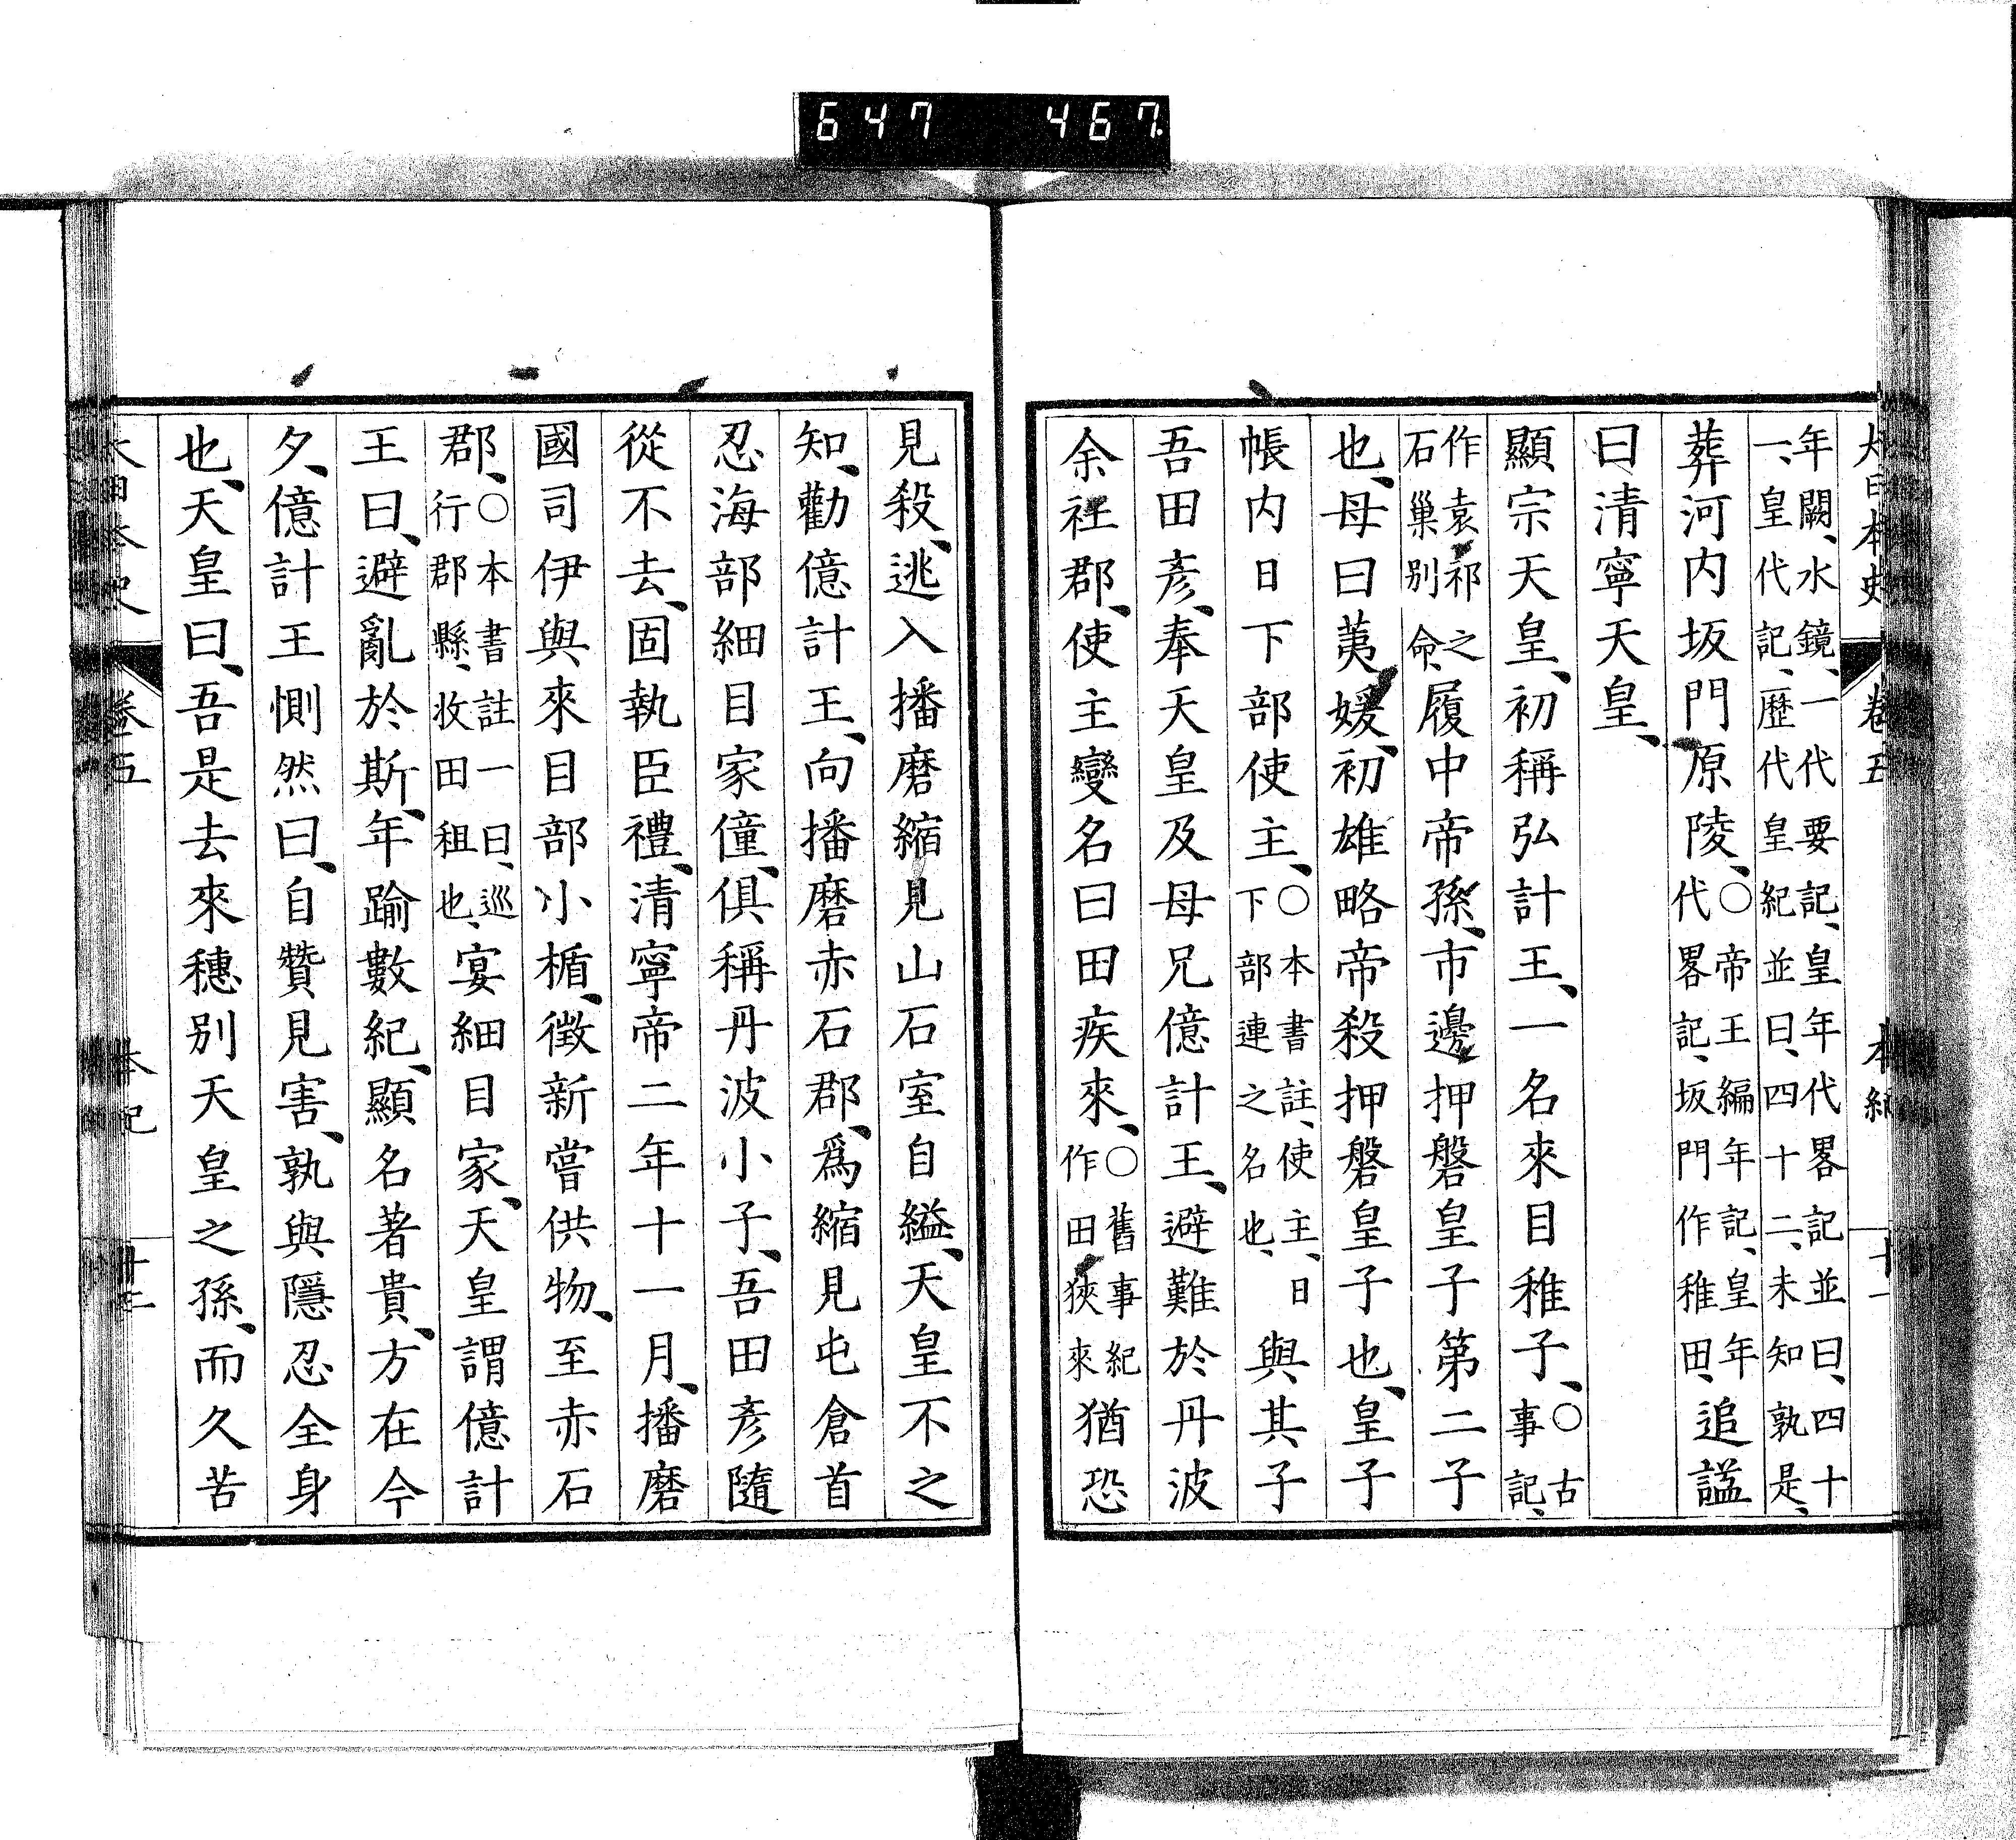 647 467.
大日本史 卷五 本紀 十一
年闕、水鏡、一代要記、皇年代畧記並曰、四十
一、皇代記、歷代皇紀並曰、四十二、未知孰是、
葬河内坂門原陵、○帝王編年記、皇年代畧記、坂門作稚田、追謚
曰清寧天皇、
顯宗天皇、初稱弘計王、一名來目稚子、○古事記、
作袁祁之石巢別命、履中帝孫、市邊押磐皇子第二子
也、母曰荑媛、初雄略帝殺押磐皇子也、皇子
帳内日下部使主、○本書註、使主、日下部連之名也、與其子
吾田彥、奉天皇及母兄億計王、避難於丹波
余社郡、使主變名曰田疾來、○舊事紀作田狹來猶恐
見殺、逃入播磨縮見山石室自縊、天皇不之
知、勸億計王、向播磨赤石郡、爲縮見屯倉首
忍海部細目家僮、俱稱丹波小子、吾田彥隨
從不去、固執臣禮、清寧帝二年十一月、播磨
國司伊與來目部小楯、徵新嘗供物、至赤石
郡、○本書註一曰、巡行郡縣、收田租也、宴細目家、天皇謂億計
王曰、避亂於斯、年踰數紀、顯名著貴、方在今
夕、億計王惻然曰、自贊見害、孰與隱忍全身
也、天皇曰、吾是去來穗別天皇之孫、而久苦
大日本史 卷五 本紀